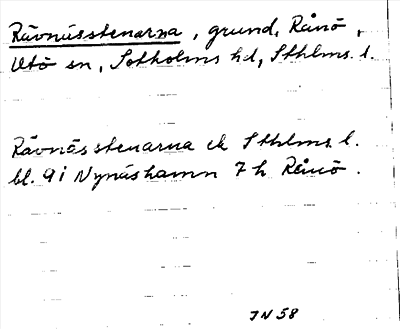 Rävnässtenarna, grund, Rånö,
Utö sn, Sotholms hd, Sthlms l.
Rävnässtenarna ek Sthlms l.
bl. 9 i Nynäshamn 7 h Rånö.
JN 58